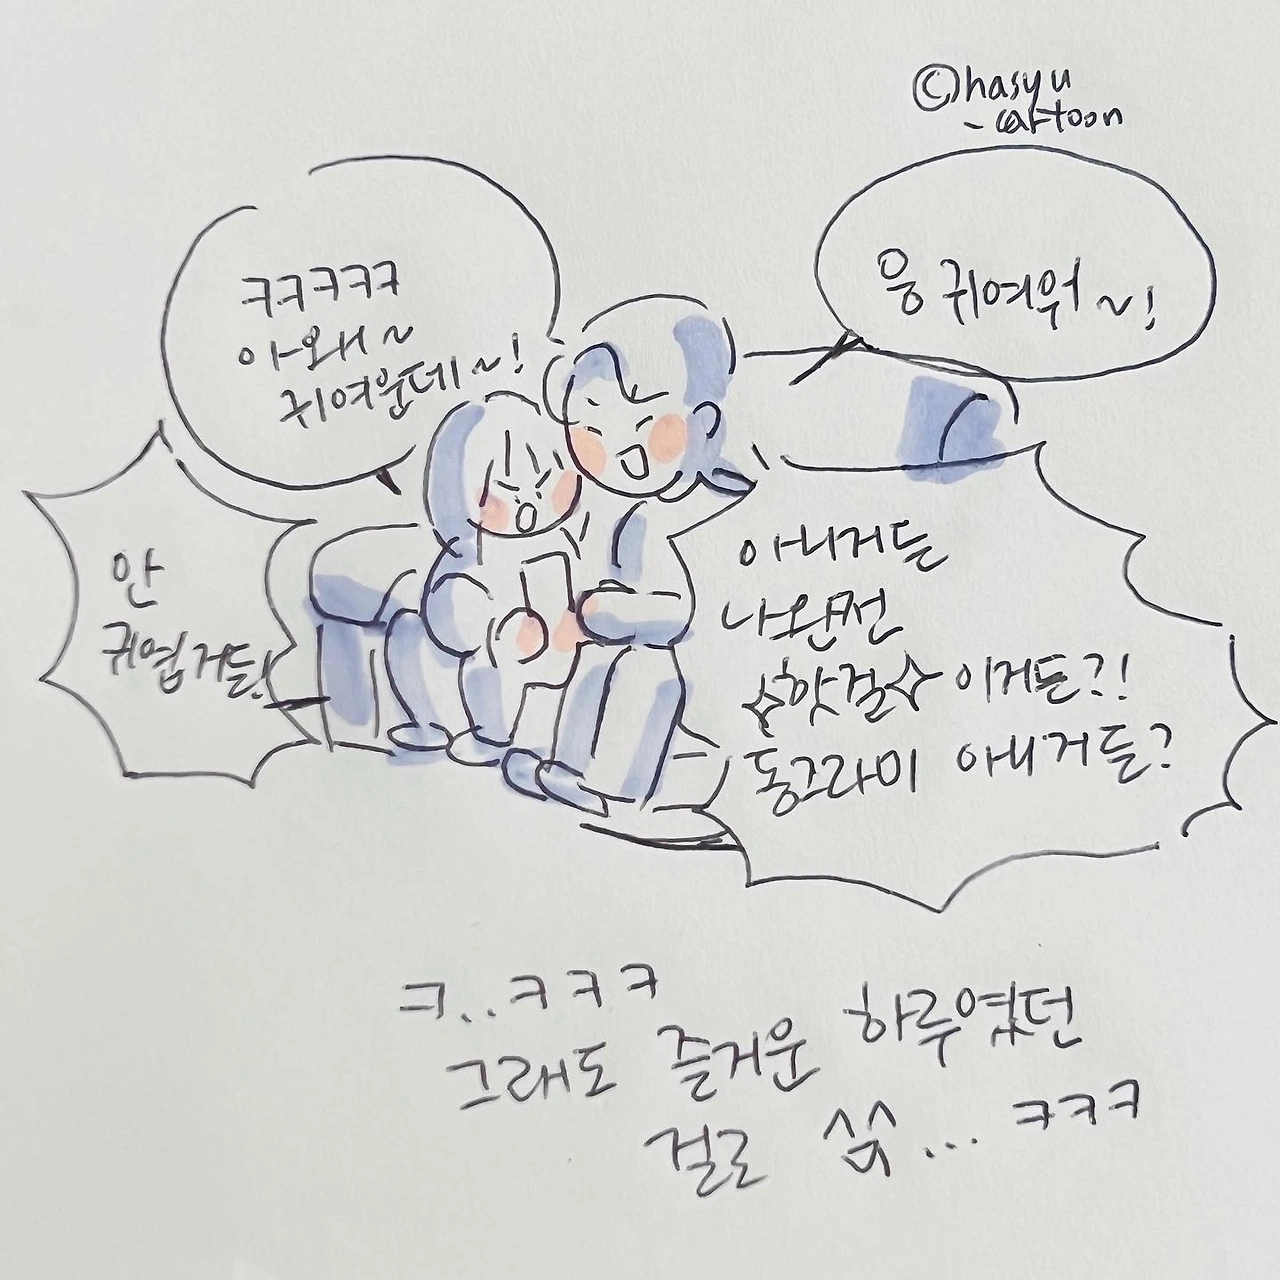 ©hasyu
-cartoon
ㅋㅋㅋㅋㅋ
아 왜~
귀여운데~!
응 귀여워~!
안
귀엽거든!
아니거든
나 완전
✧핫걸✧ 이거든?!
동그라미 아니거든?
ㅋ..ㅋㅋㅋ
그래도 즐거운 하루였던
걸로 ^^... ㅋㅋㅋ